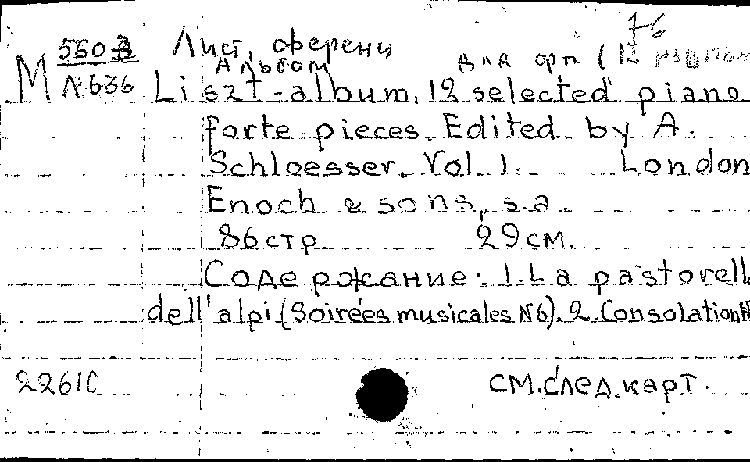 76
Лист, Ференц
М 550-3
N-636
Альбом для фп (12
Liszt-album, 12 selected piano
forte pieces. Edited by A.
Schloesser. Vol. 1. London
Enoch & sons, s.a.
86 стр 29 см.
Содержание: 1. La pastorell
dell'alpi (Soirées musicales N6). 2. Consolation N
2261с
см. след. карт.